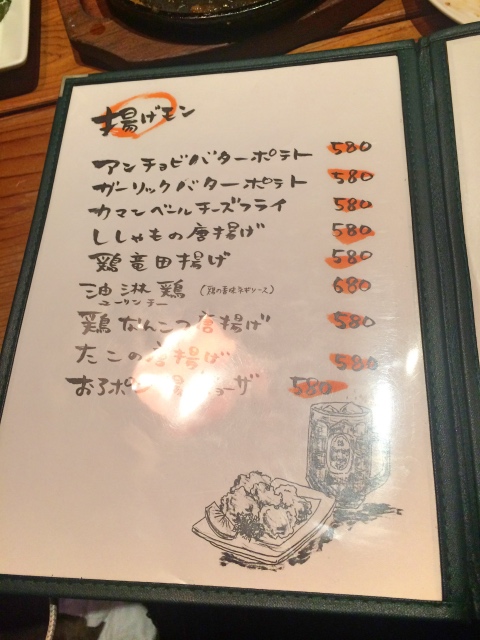 揚げモン
アンチョビバターポテト 580
ガーリックバターポテト 580
カマンベールチーズフライ 580
ししゃもの唐揚げ 580
鶏竜田揚げ 580
油淋鶏 (鶏の香味ネギソース) 680
ユーリンチー
鶏なんこつ唐揚げ 580
たこの唐揚げ 580
おろポン揚ギョーザ 580